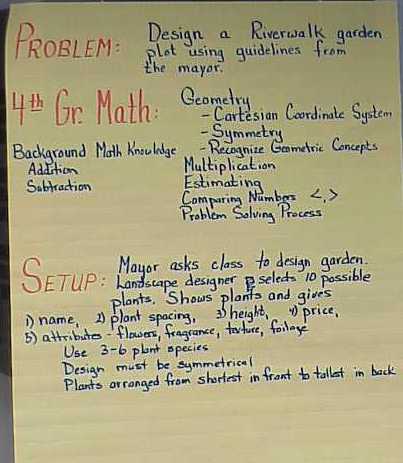 PROBLEM: Design a Riverwalk garden
plot using guidelines from
the mayor.
4th Gr. Math: Geometry
- Cartesian Coordinate System
- Symmetry
- Recognize Geometric Concepts
Background Math Knowledge
Addition
Subtraction
Multiplication
Estimating
Comparing Numbers <,>
Problem Solving Process
SETUP: Mayor asks class to design garden.
Landscape designer selects 10 possible
plants. Shows plants and gives
1) name, 2) plant spacing, 3) height, 4) price,
5) attributes - flowers, fragrance, texture, foliage
Use 3-6 plant species
Design must be symmetrical
Plants arranged from shortest in front to tallest in back